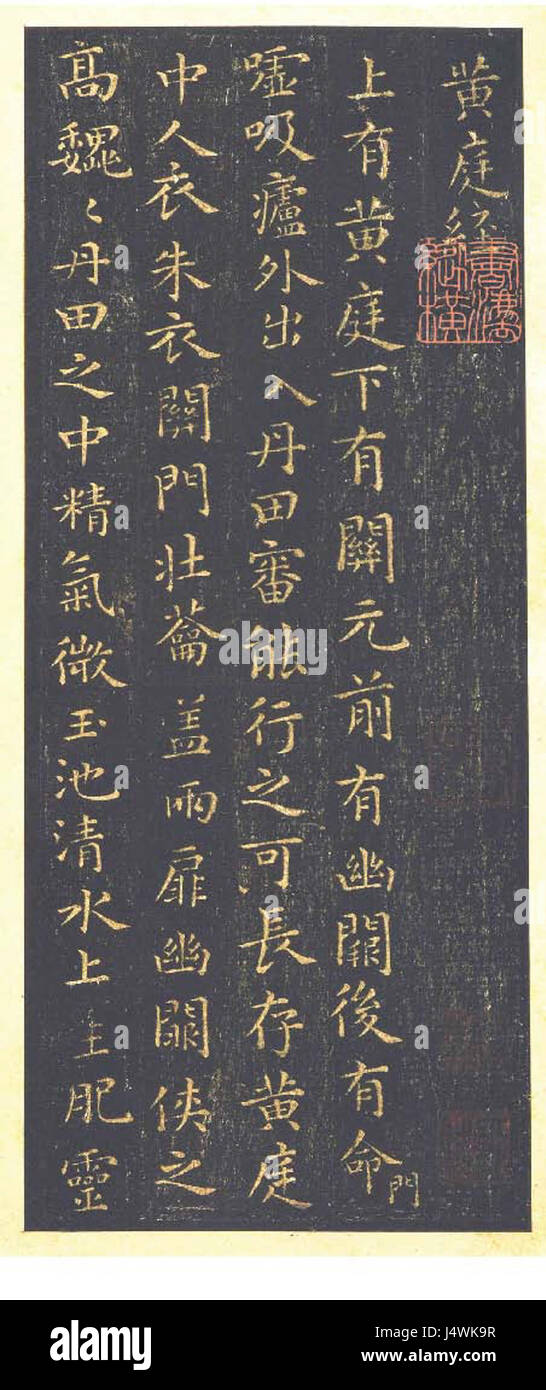 黄庭經
上有黄庭下有關元前有幽闕後有命門
嘘吸廬外出入丹田審能行之可長存黄庭
中人衣朱衣關門壯蘥盖兩扉幽闕俠之
高巍〻丹田之中精氣微玉池清水上生肥靈
alamy
alamy stock photo
J4WK9R
www.alamy.com